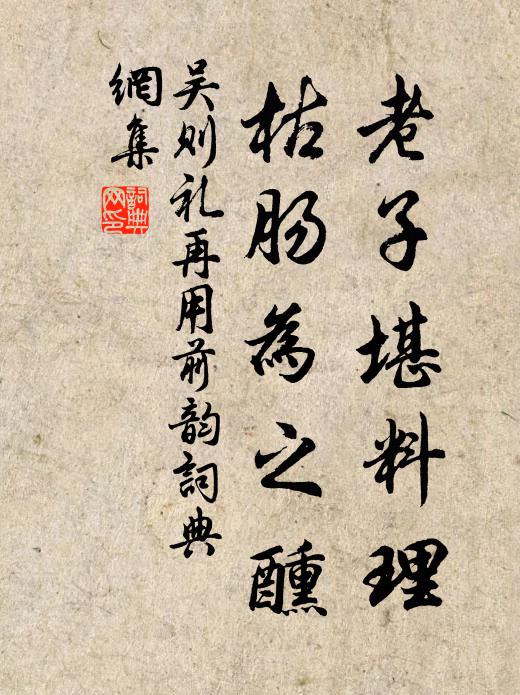 老子堪料理
枯肠為之醺
吴则礼再用前韵詞典
網集
詞典網印